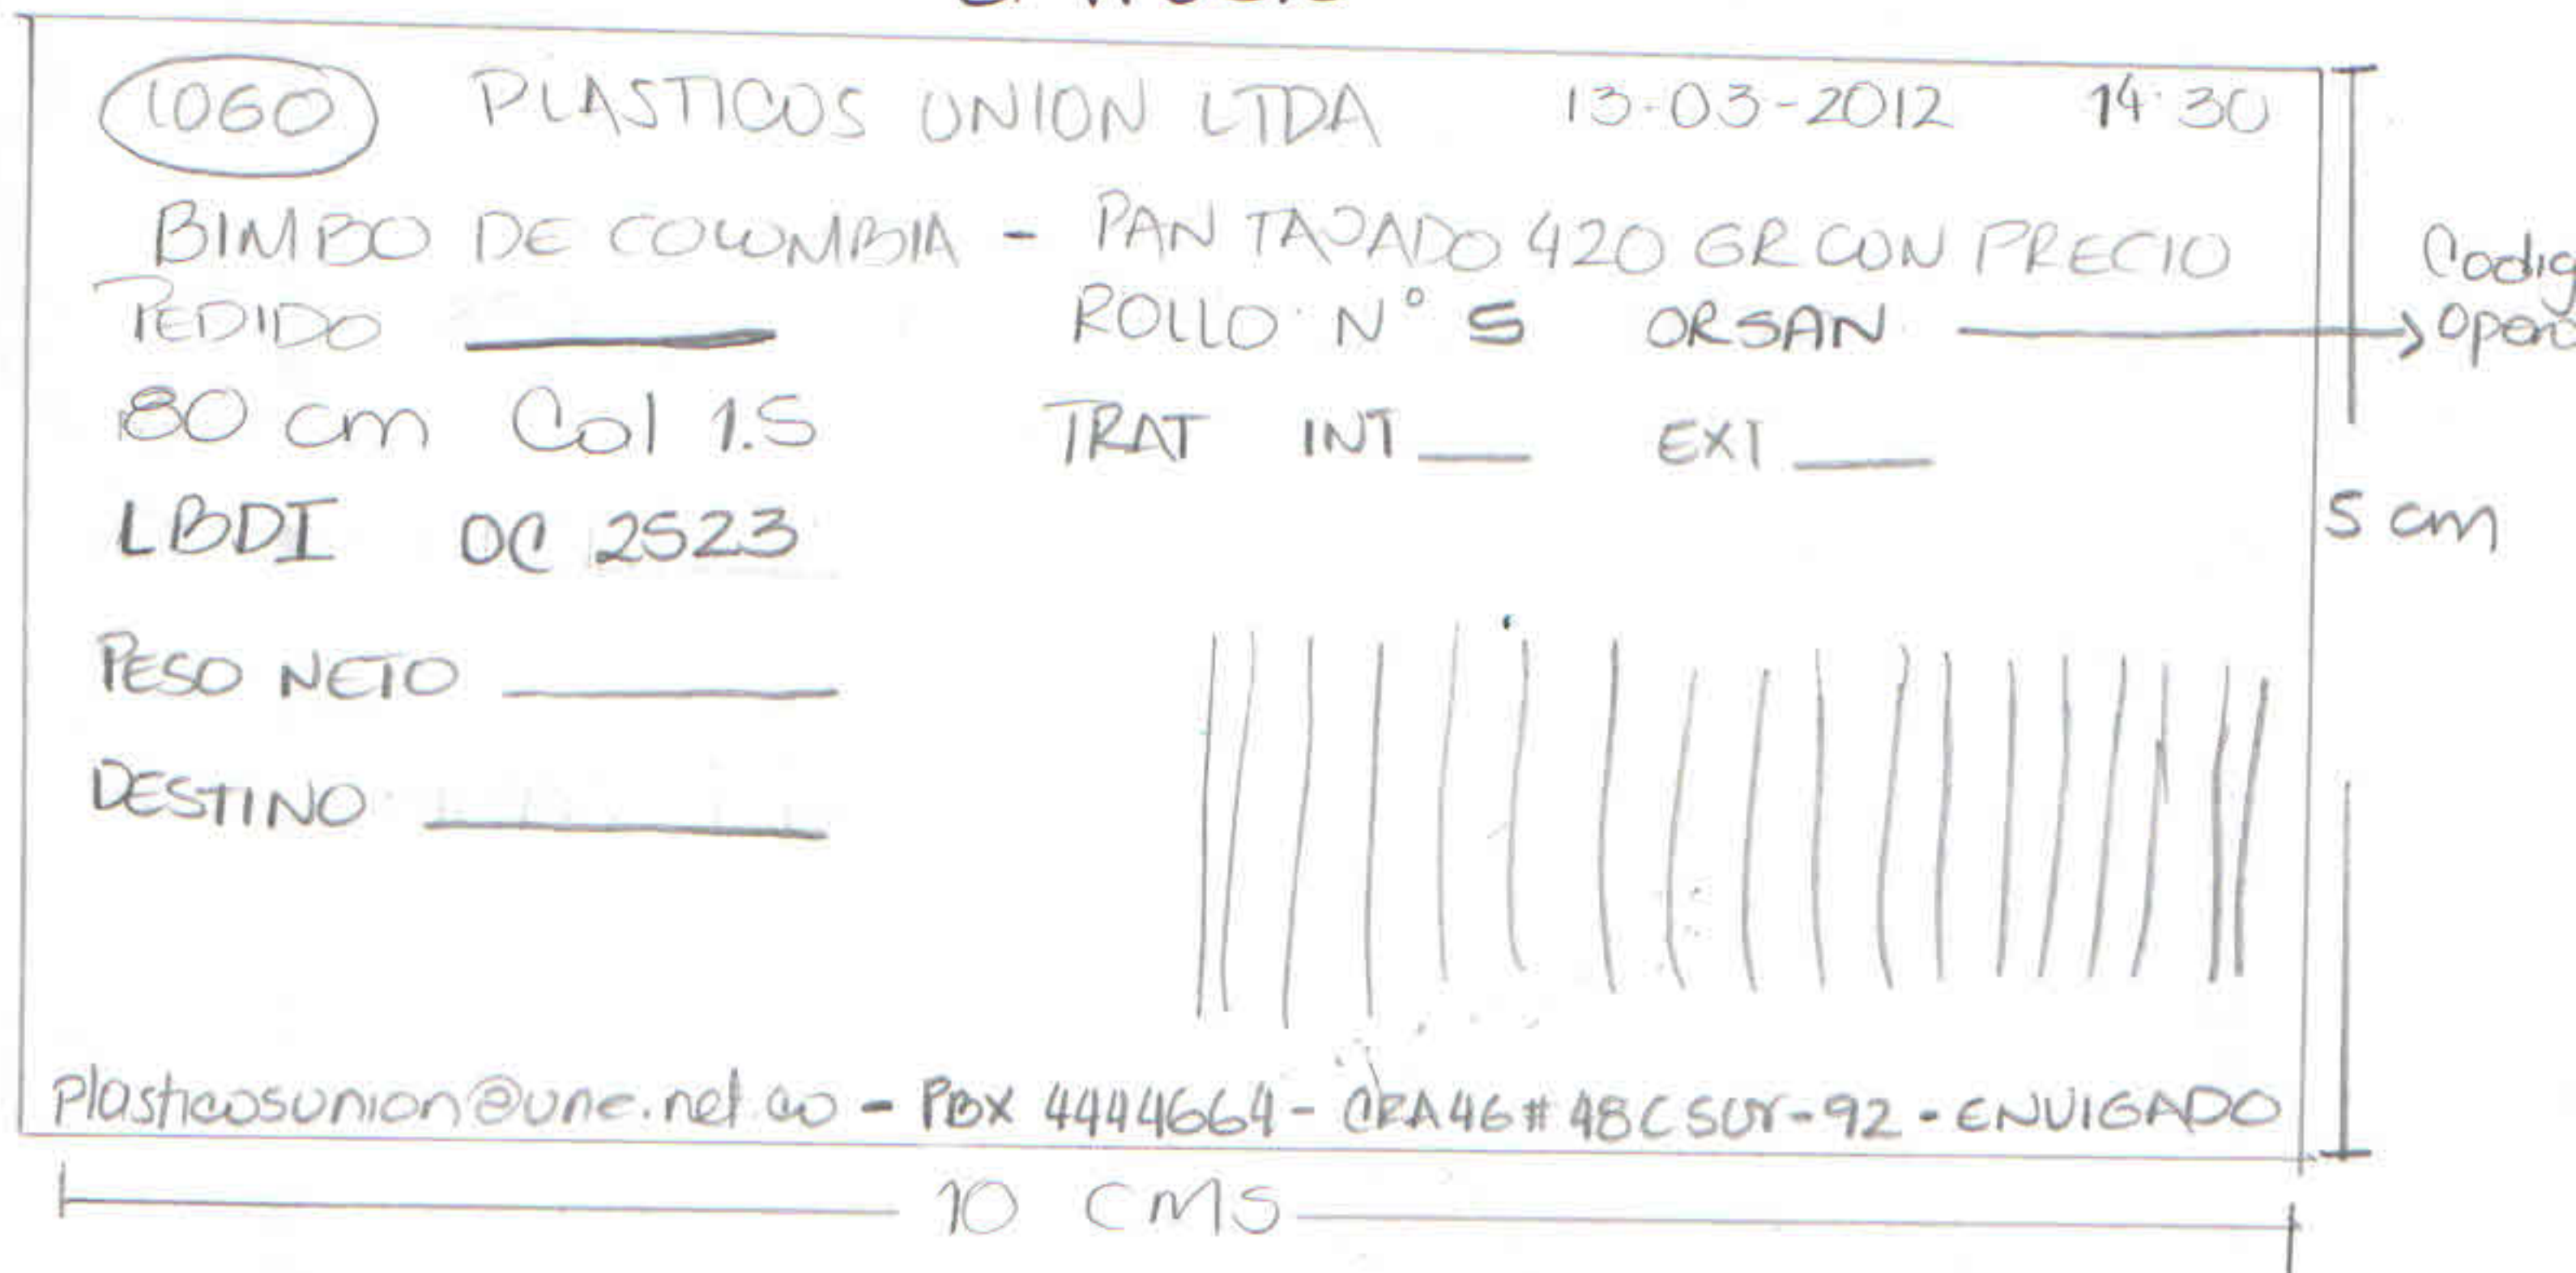 LOGO PLASTICOS UNION LTDA 13-03-2012 14:30
BIMBO DE COLOMBIA - PAN TAJADO 420 GR CON PRECIO
PEDIDO ____ ROLLO N° 5 ORSAN
Codig
Opera
80 cm Col 1.5 TRAT INT __ EXT __
LBDI OC 2523
5 cm
PESO NETO ____
DESTINO ____
plasticosunion@une.net.co - PBX 4444664 - CRA 46 # 48C SUR-92 - ENVIGADO
10 CMS